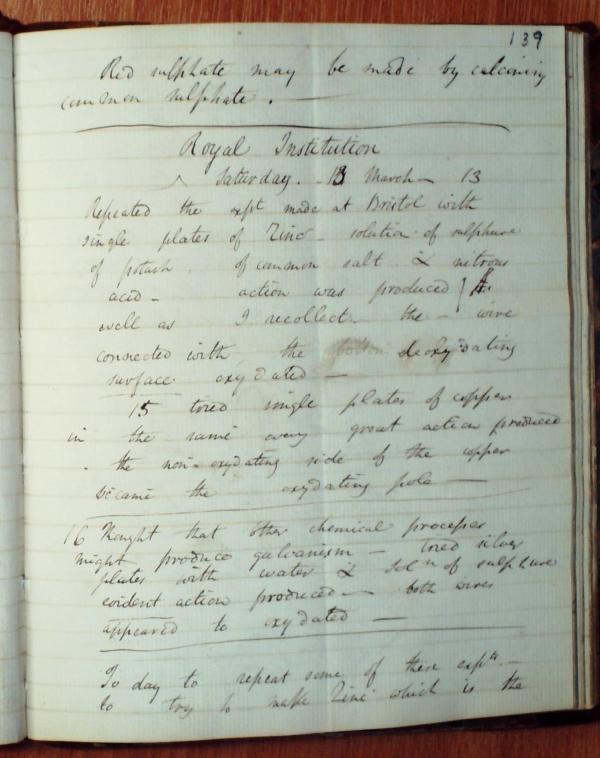 139
Red sulphate may be made by calcining
common sulphate. —
Royal Institution
Saturday. 13 March — 13
Repeated the expt made at Bristol with
single plates of Zinc — solution of sulphure
of potash, of common salt & nitrous
acid — action was produced
well as I recollect — the — wire
connected with the bottom deoxydating
surface oxydated —
15 tried single plates of copper
in the same every great action produced
. the non-oxydating side of the copper
became the oxydating pole —
16 Thought that other chemical processes
might produce galvanism — tried silver
plates with water & soln of sulphure
evident action produced — both wires
appeared to oxydate —
To day to repeat some of these expts. —
to try to make Zinc which is the